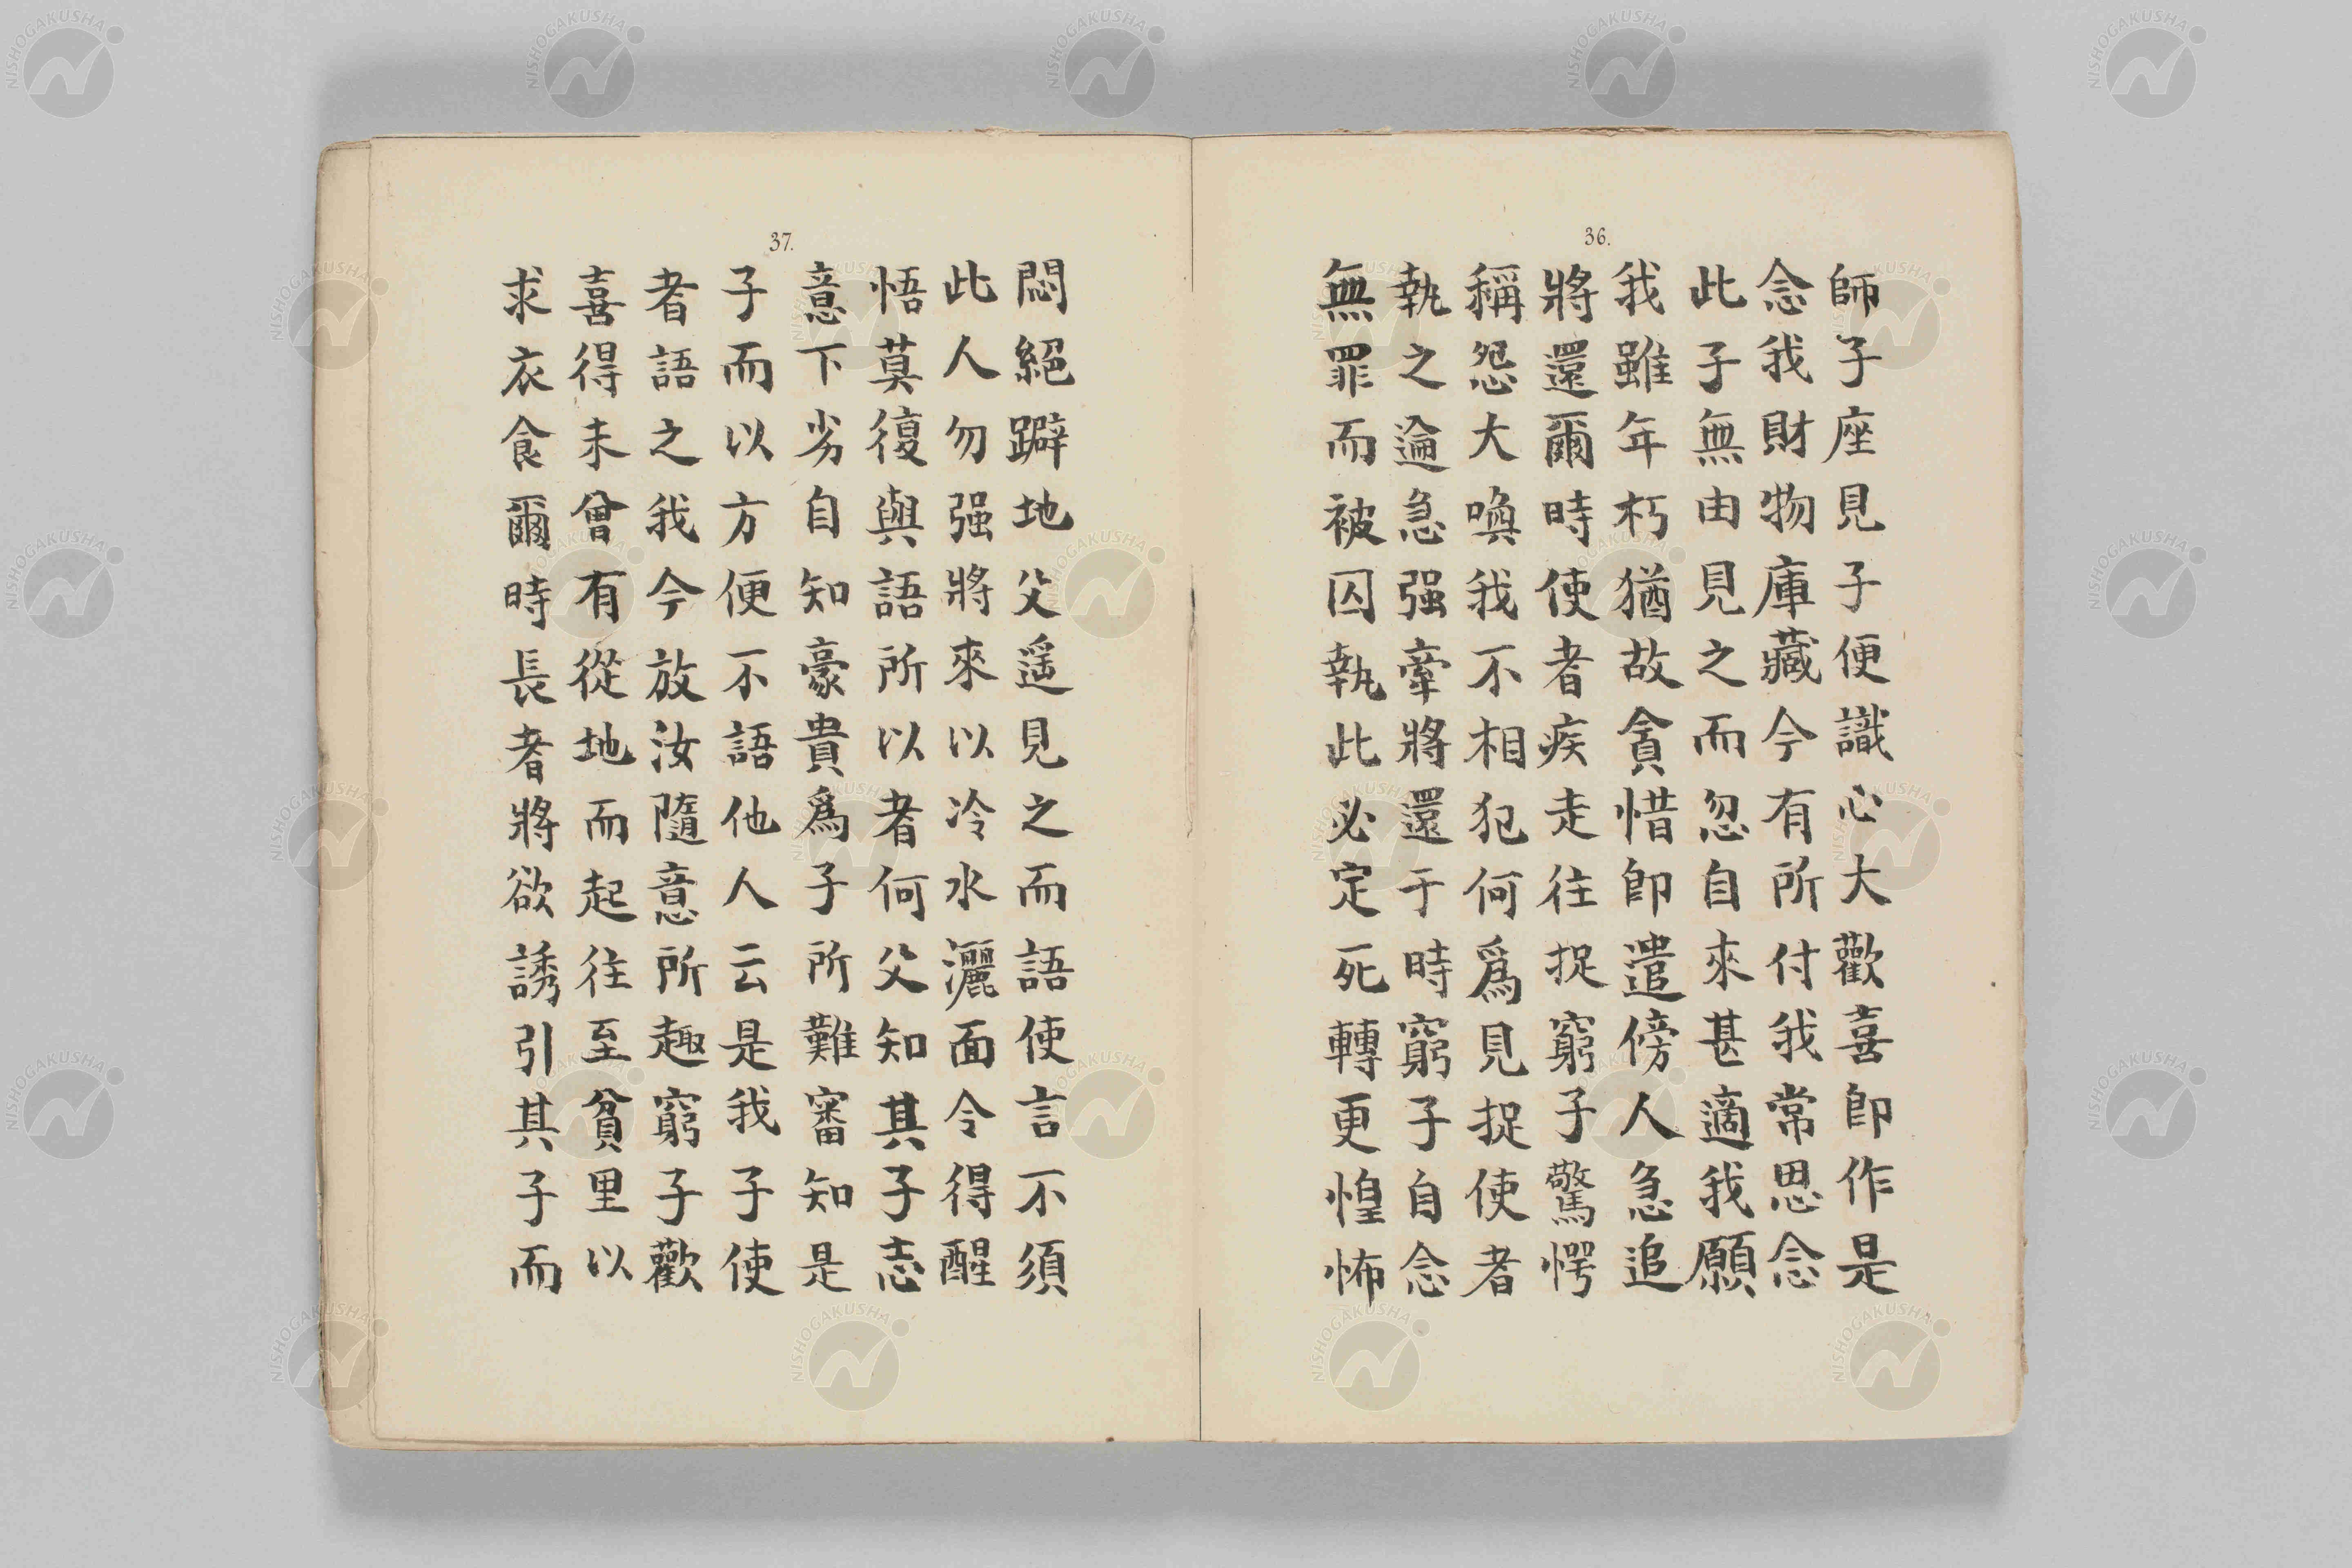 36.
師子座見子便識心大歡喜卽作是
念我財物庫藏今有所付我常思念
此子無由見之而忽自來甚適我願
我雖年朽猶故貪惜卽遣傍人急追
將還爾時使者疾走往捉窮子驚愕
稱怨大喚我不相犯何爲見捉使者
執之逾急强牽將還于時窮子自念
無罪而被囚執此必定死轉更惶怖
37.
悶絕躃地父遥見之而語使言不須
此人勿强將來以冷水灑面令得醒
悟莫復與語所以者何父知其子志
意下劣自知豪貴爲子所難審知是
子而以方便不語他人云是我子使
者語之我今放汝隨意所趣窮子歡
喜得未曾有從地而起往至貧里以
求衣食爾時長者將欲誘引其子而
NISHOGAKUSHA